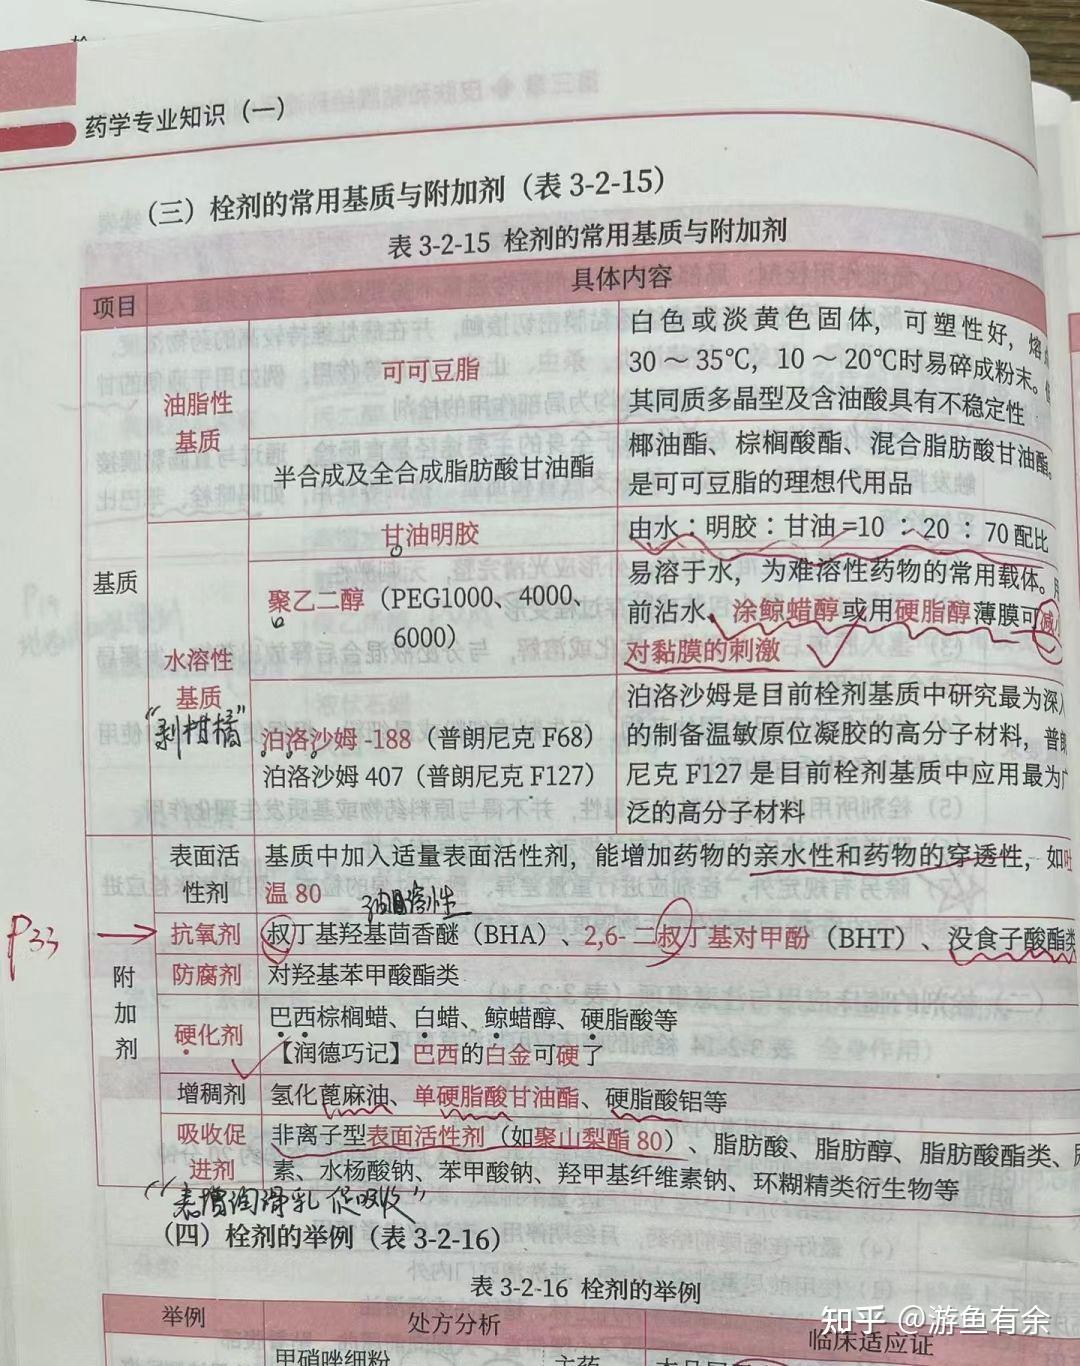 药学专业知识（一）
（三）栓剂的常用基质与附加剂（表 3-2-15）
表 3-2-15 栓剂的常用基质与附加剂
项目
具体内容
基质
油脂性
基质
可可豆脂
白色或淡黄色固体，可塑性好，熔
30～35℃，10～20℃时易碎成粉末。
其同质多晶型及含油酸具有不稳定性
半合成及全合成脂肪酸甘油酯
椰油酯、棕榈酸酯、混合脂肪酸甘油酯。
是可可豆脂的理想代用品
水溶性
基质
“剥柑橘”
甘油明胶
由水：明胶：甘油=10：20：70 配比
聚乙二醇（PEG1000、4000、
6000）
易溶于水，为难溶性药物的常用载体。
前沾水、涂鲸蜡醇或用硬脂醇薄膜可减
对黏膜的刺激
泊洛沙姆-188（普朗尼克 F68）
泊洛沙姆 407（普朗尼克 F127）
泊洛沙姆是目前栓剂基质中研究最为深入
的制备温敏原位凝胶的高分子材料，普朗
尼克 F127 是目前栓剂基质中应用最为广
泛的高分子材料
附
加
剂
表面活
性剂
基质中加入适量表面活性剂，能增加药物的亲水性和药物的穿透性，如吐
温 80
油溶性
P33
抗氧剂
叔丁基羟基茴香醚（BHA）、2,6-二叔丁基对甲酚（BHT）、没食子酸酯类
防腐剂
对羟基苯甲酸酯类
硬化剂
巴西棕榈蜡、白蜡、鲸蜡醇、硬脂酸等
【润德巧记】巴西的白金可硬了
增稠剂
氢化蓖麻油、单硬脂酸甘油酯、硬脂酸铝等
吸收促
进剂
非离子型表面活性剂（如聚山梨酯 80）、脂肪酸、脂肪醇、脂肪酸酯类、尿
素、水杨酸钠、苯甲酸钠、羟甲基纤维素钠、环糊精类衍生物等
“表增润滑乳 促吸收”
（四）栓剂的举例（表 3-2-16）
表 3-2-16 栓剂的举例
举例
处方分析
临床适应证
甲硝唑细粉
主药
知乎 @游鱼有余